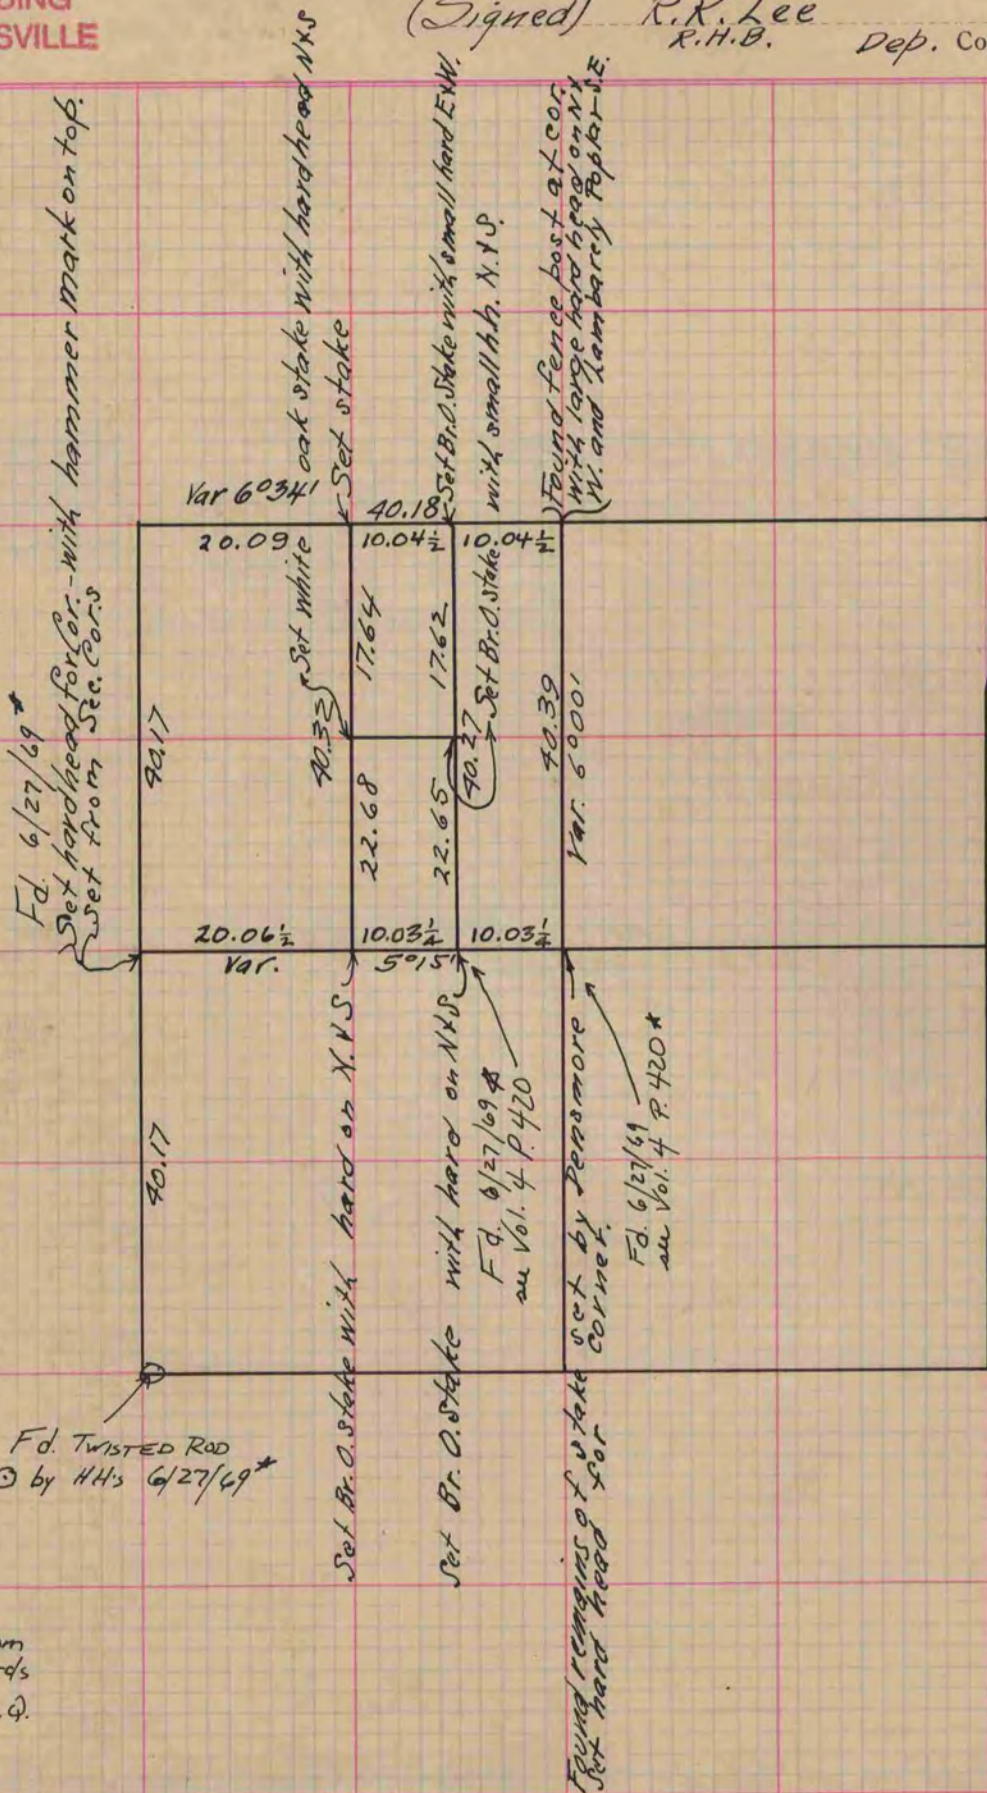 SVILLE
(Signed) R.R. Lee
R.H.B. Dep. Co
Fd. 6/27/69 *
Set hardhead for Cor. - with hammer mark on top.
Set from Sec. Cor.s
Set white oak stake with hardhead N&S
Set stake
Set Br.O. Stake with small hard E&W.
Set Br.O. stake with small h.h. N.&S.
Found fence post at cor.
with large hard head on N &
W. and Lambarely Poplar S.E.
Var 6°34'
40.18
20.09
10.04½
10.04½
40.17
40.32
17.64
17.62
22.68
22.65
40.27
40.39
Var. 6°00'
20.06½
10.03¼
10.03¼
Var.
5°15'
40.17
Set Br. O. stake with hard on N.&S.
Set Br. O. Stake with hard on N&S.
Fd. 6/27/69 *
see Vol. 4 P. 420
Found remains of stake set by Densmore
Set hard head for corner.
Fd. 6/27/69
see Vol. 4 P. 420 *
Fd. TWISTED ROD
⊙ by HH's 6/27/69 *